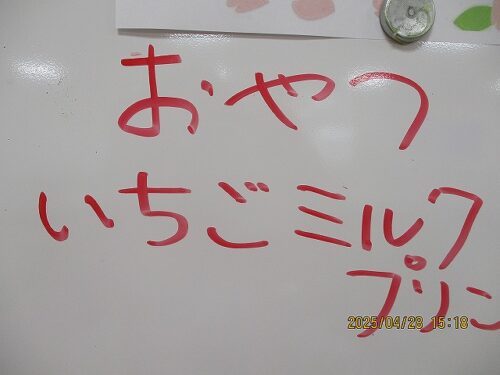 おやつ
いちごミルク
プリン
2025/04/28 15:18